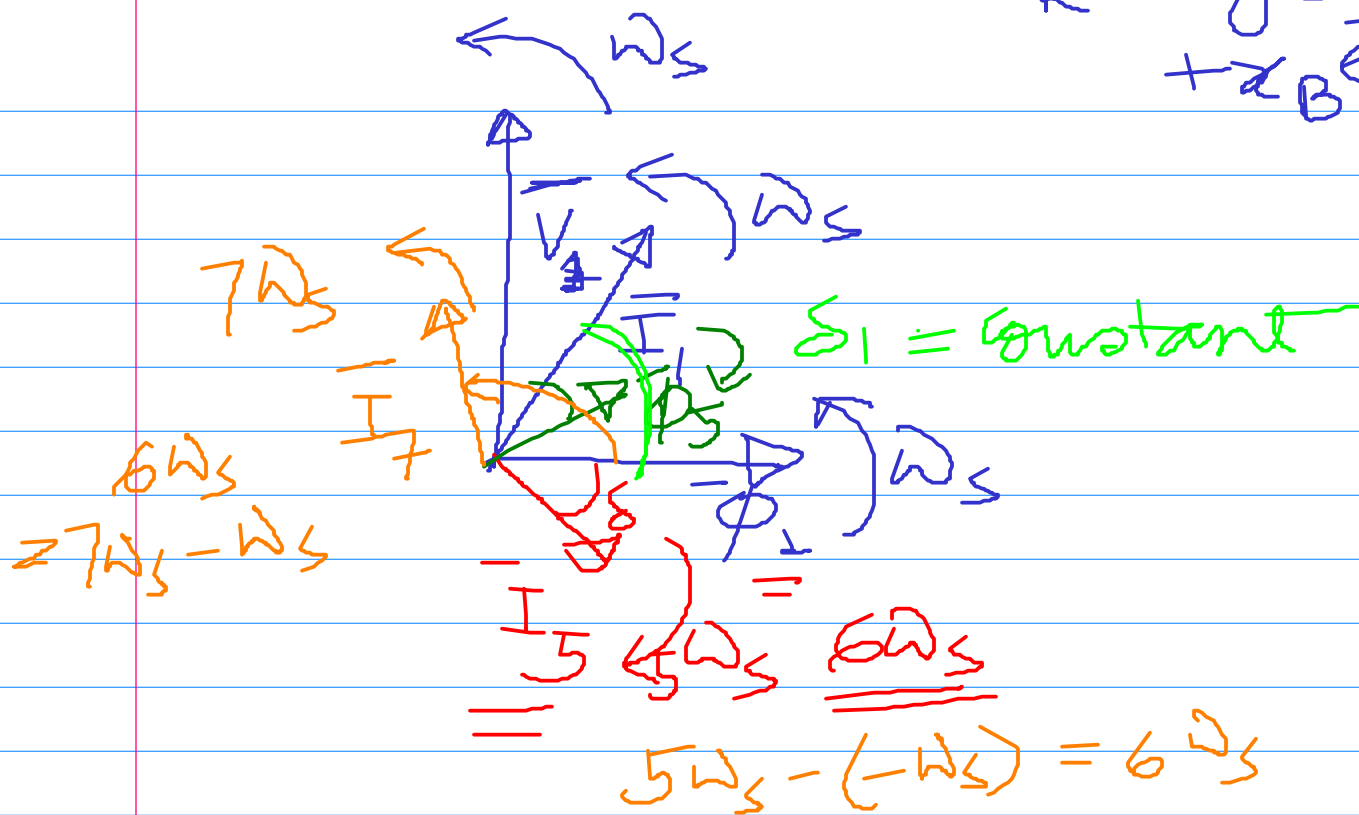 ωs
+ α B
V̄1
ωs
7ωs
Ī1
δ1 = constant
Ī7
ωs
6ωs
= 7ωs − ωs
δ
φ̄1
Ī5
5ωs
6ωs
5ωs − (−ωs) = 6ωs